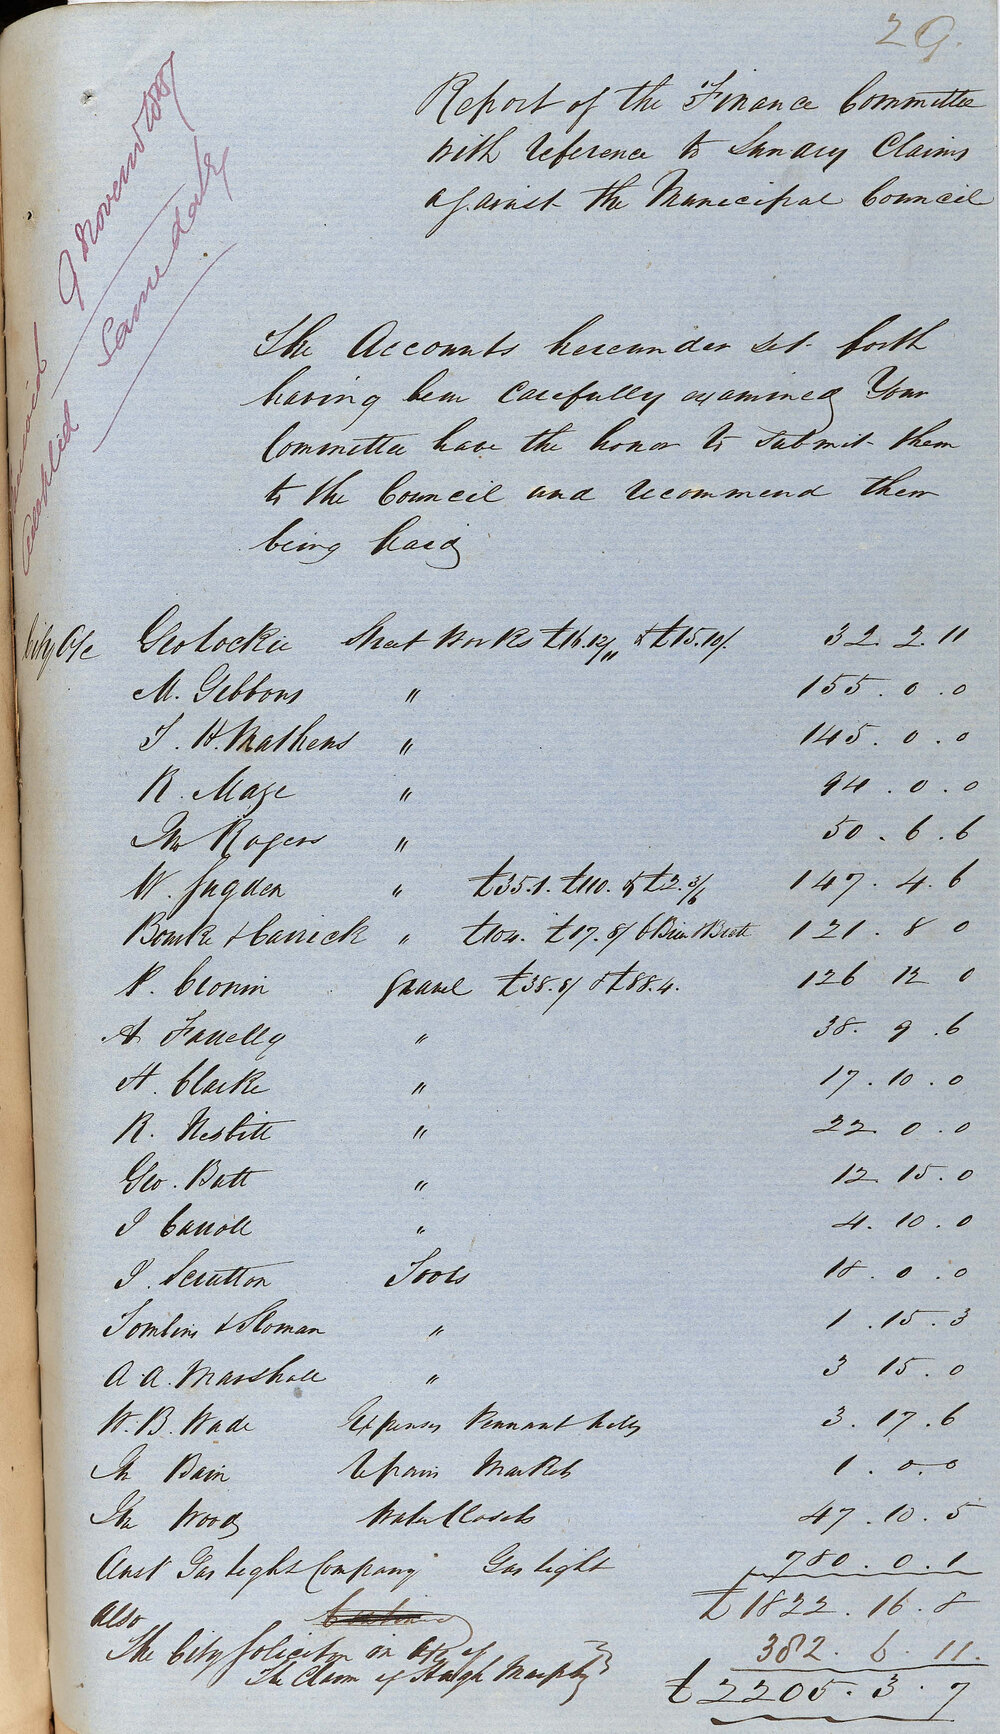 29.
Report of the Finance Committee
with reference to Sundry Claims
against the Municipal Council
9 November
Same date
The Accounts hereunder set forth
having been carefully examined Your
Committee have the honor to submit them
to the Council and recommend them
being paid
City A/c Geo Lockie Street Works £16.12/11 & £15.10/. 32. 2. 11
M. Gibbons " 155. 0. 0
J. H. Mathews " 145. 0. 0
R. Mage " 94. 0. 0
Rogers " 50. 6. 6
W. Jugden " £35.1. £110. & £2.3/6 147. 4. 6
Bourke & Carrick " £104. £17.8/ 121. 8 0
P. Cronin Gravel £38.8/ & £88.4. 126 12 0
A Fanelly " 38. 9. 6
H. Clarke " 17. 10. 0
R. Nesbitt " 22. 0. 0
Geo. Butt " 12. 15. 0
J Carroll " 4. 10. 0
J. Scrutton Tools 18. 0. 0
Tomlins & Sloman " 1. 15. 3
A. A. Marshall " 3 15. 0
W. B. Wade Expenses Pennant Hills 3. 17. 6
Bain Repairs Markets 1. 0. 0
Wood Water Closets 47. 10. 5
Aust Gas Light Company Gas Light 780. 0. 1
£1822. 16. 8
Also
The City Solicitor in a/c of
The Claim of Hugh Murphy } 382. 6. 11.
£2205. 3. 7